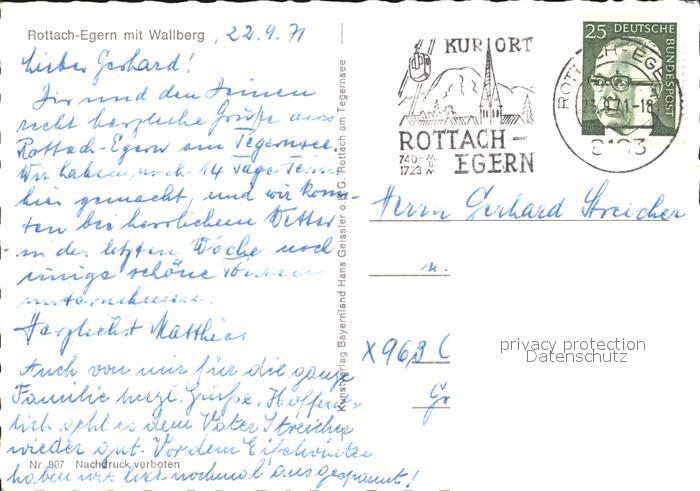 Rottach-Egern mit Wallberg
, 22.9.71
Lieber Gerhard!
Dir und den Deinen
recht herzliche Grüße aus
Rottach-Egern am Tegernsee.
Wir haben noch 14 Tage
hier gemacht, und wir konn-
ten bei herrlichem Wetter
in der letzten Woche noch
einige schöne Touren
unternehmen.
Herzlichst Matthias
Auch von mir für die ganze
Familie herzl. Grüße. Hoffent-
lich geht es dem Vater Streicher
wieder gut. Vor dem
haben wir hier nochmal ausgespannt!
Nr. 907 Nachdruck verboten
Kunstverlag Bayernland Hans Geissler o.H.G. Rottach am Tegernsee
KURORT
ROTTACH-
EGERN
740-
1723
25 DEUTSCHE
BUNDESPOST
ROTTACH-EGERN
8183
Herrn Gerhard Streicher
u.
X 963 C
Gr
privacy protection
Datenschutz